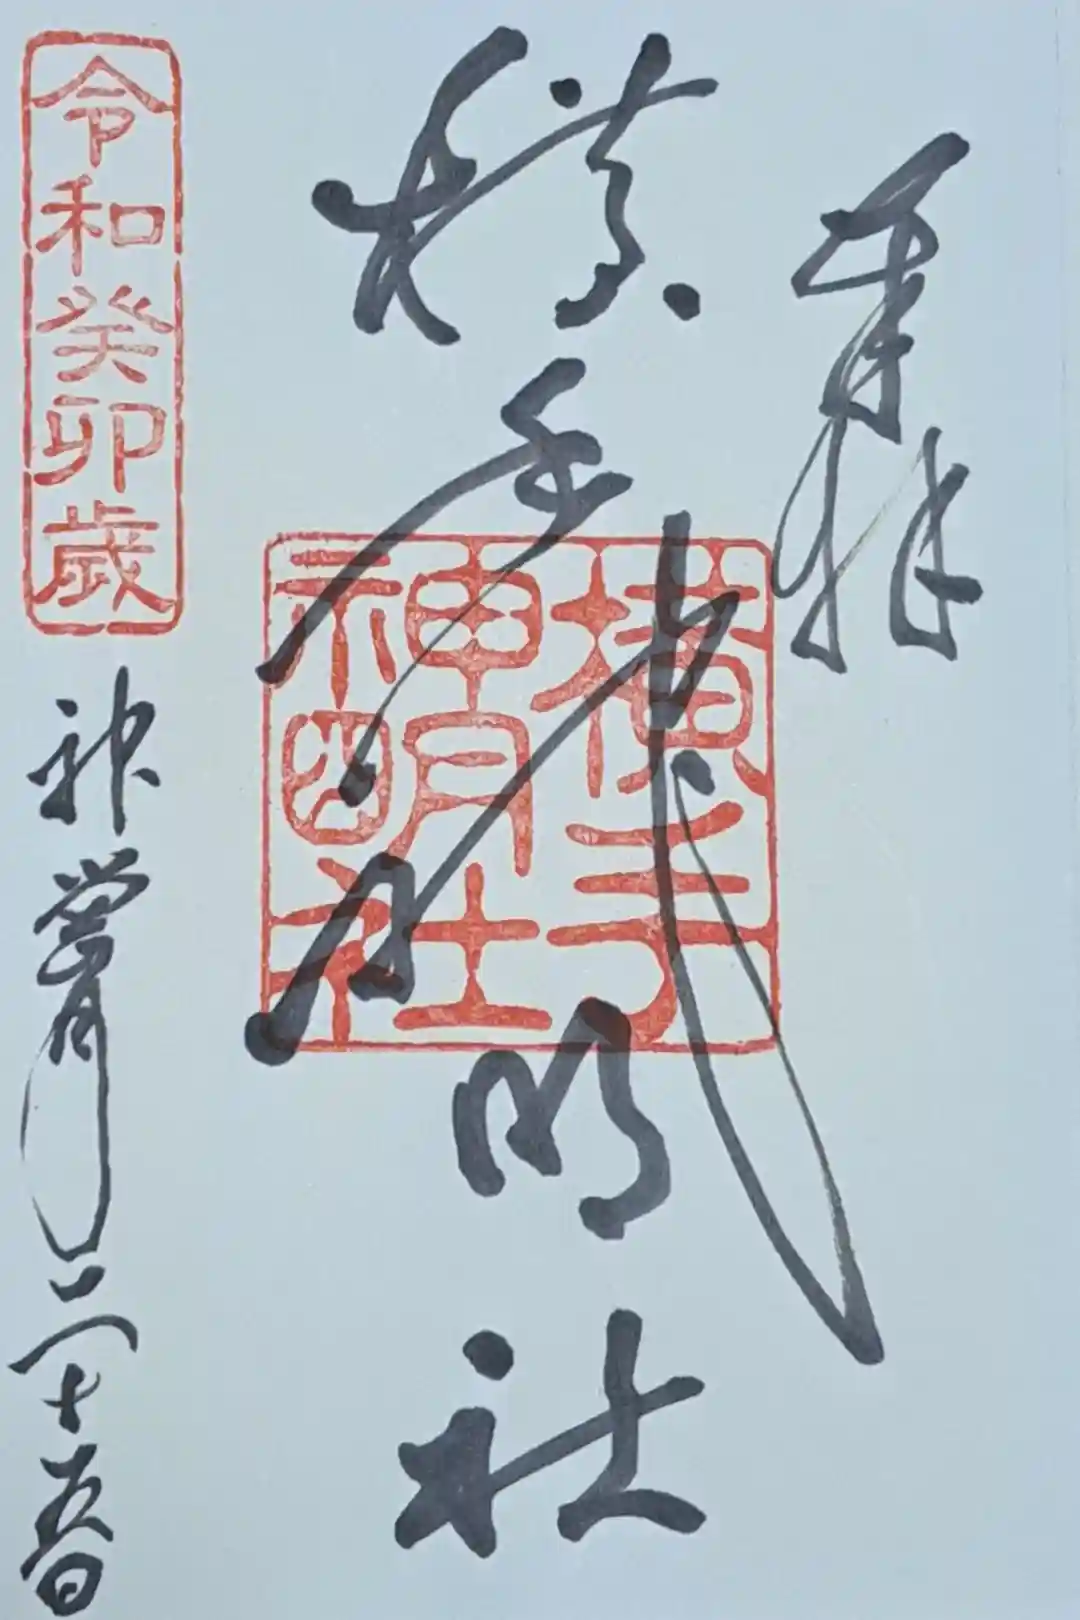 奉拝
横手神明社
横手
神明社
令和癸卯歳
神嘗月二十五日